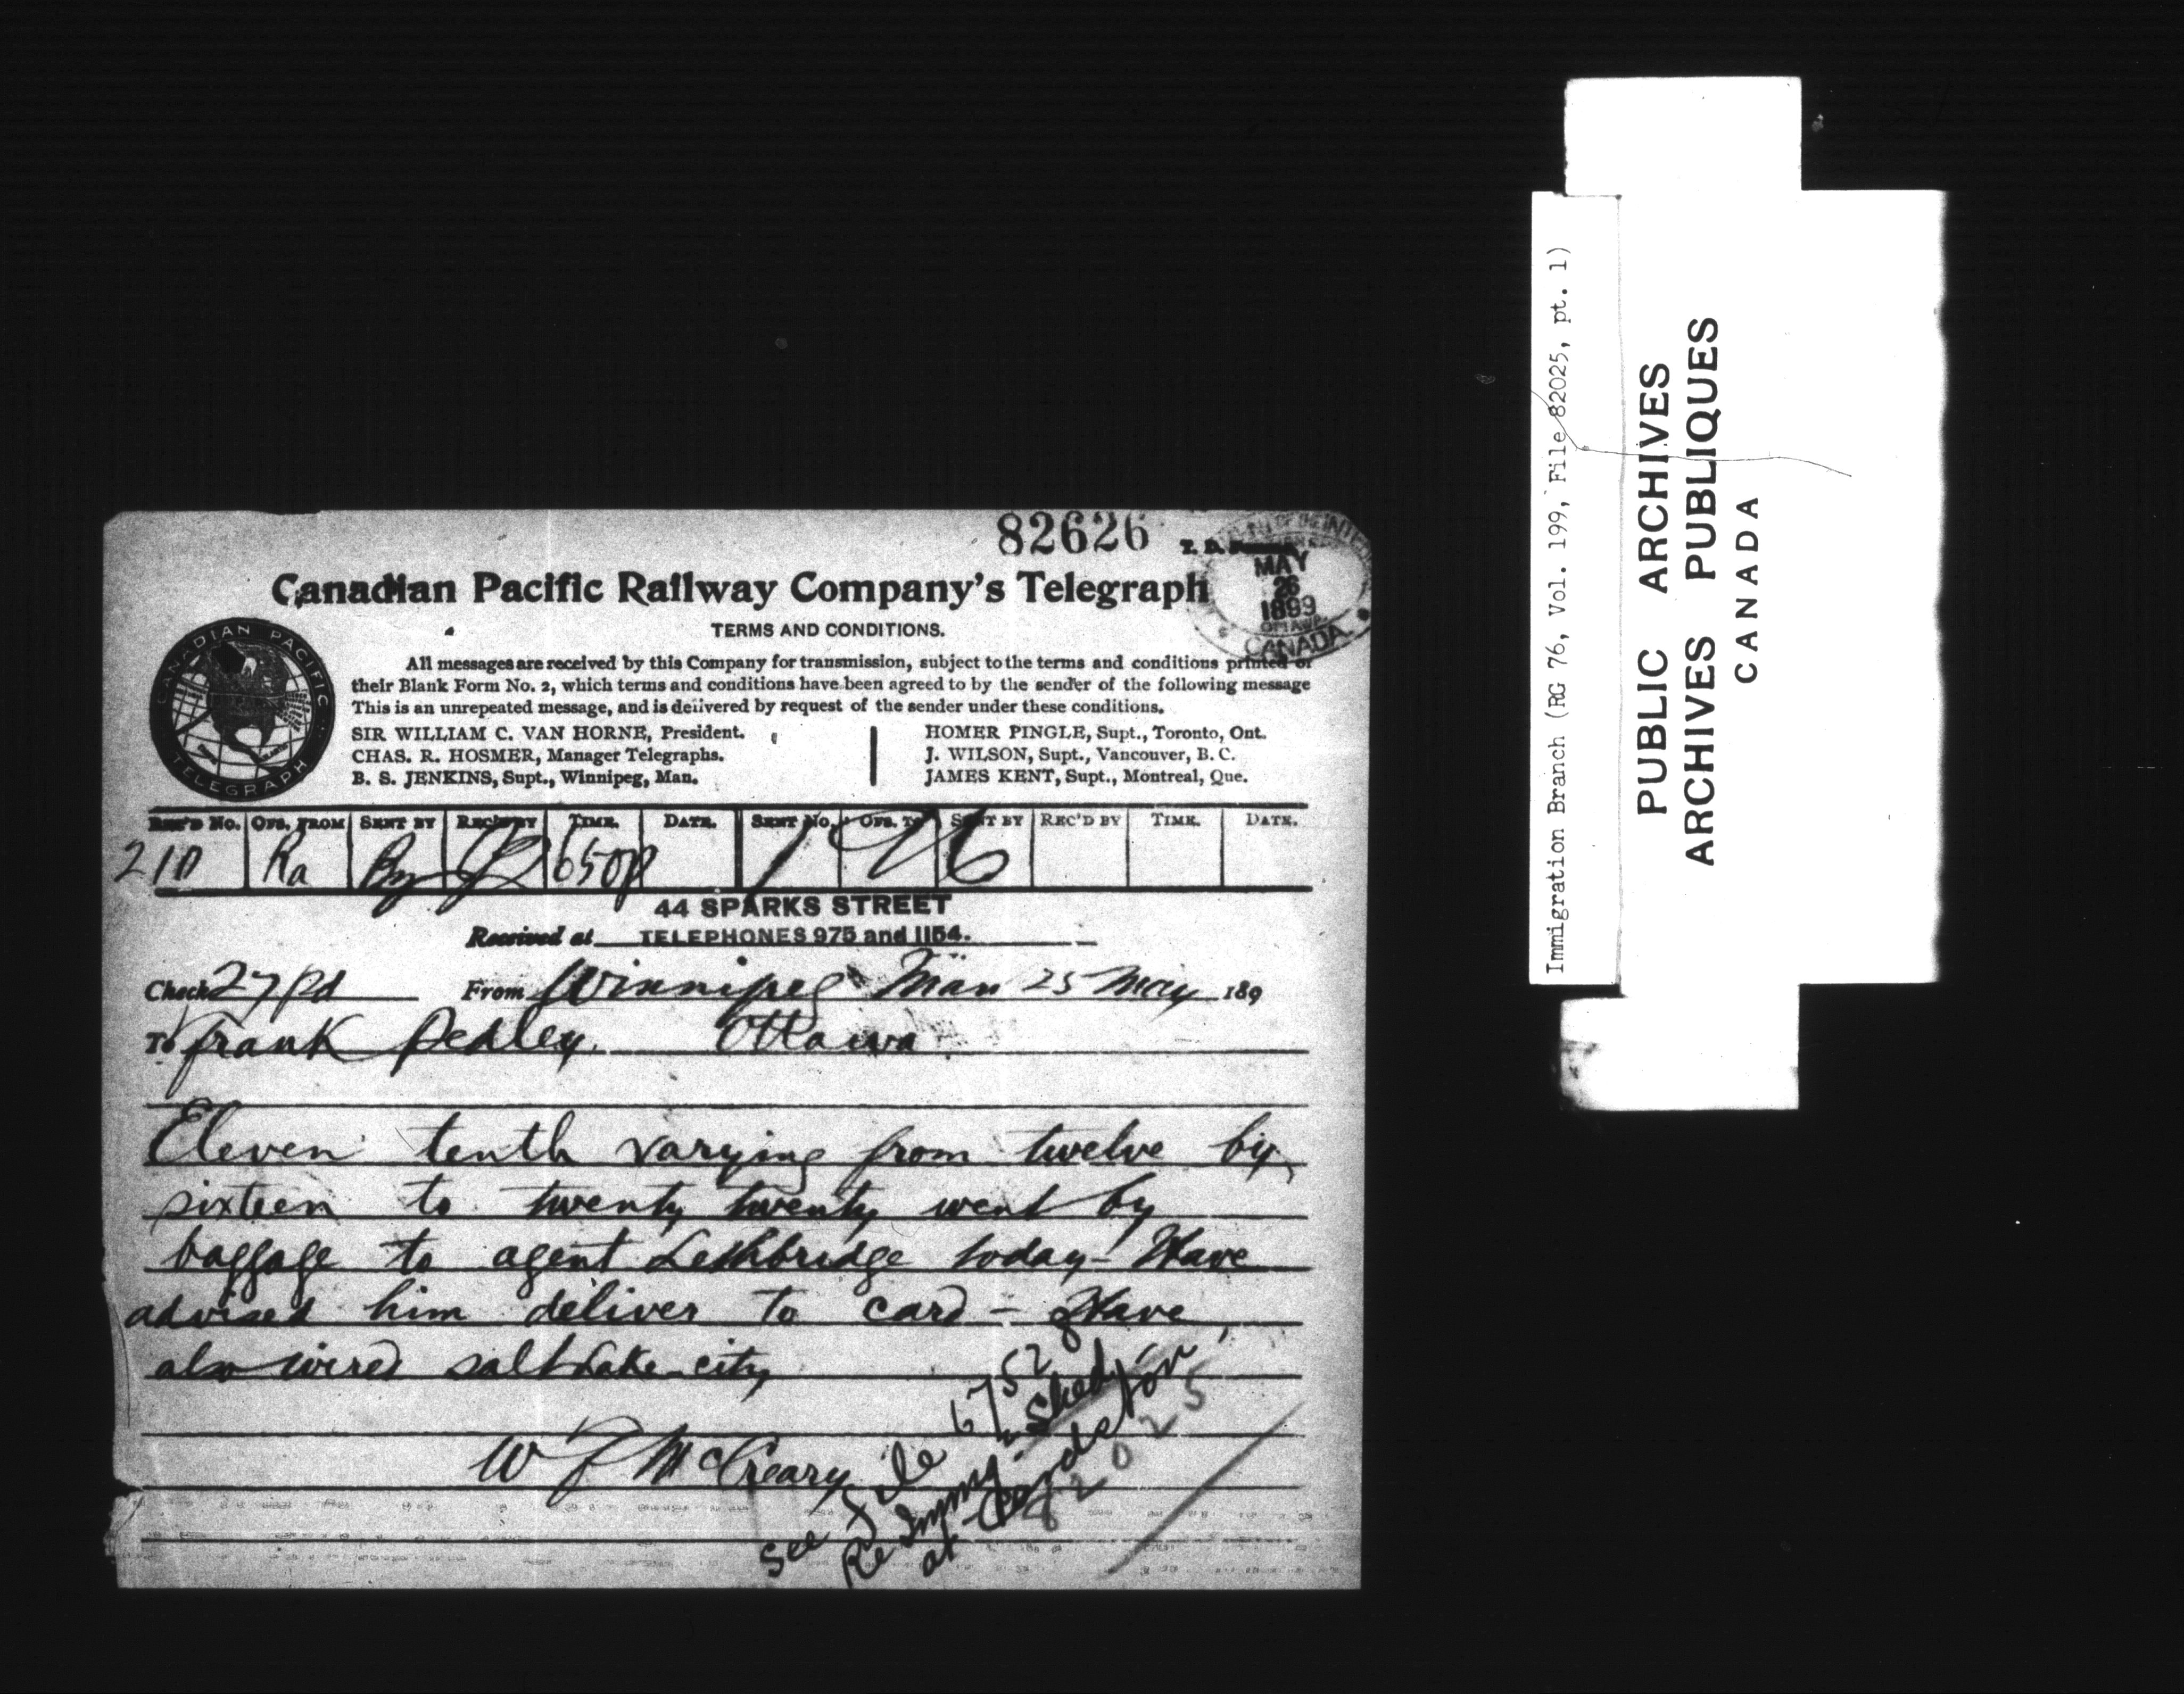 82626
T. D.
DEPARTMENT OF THE INTERIOR
MAY
26
1899
OTTAWA
CANADA
Canadian Pacific Railway Company's Telegraph
TERMS AND CONDITIONS.
CANADIAN PACIFIC
TELEGRAPH
All messages are received by this Company for transmission, subject to the terms and conditions printed or
their Blank Form No. 2, which terms and conditions have been agreed to by the sender of the following message
This is an unrepeated message, and is delivered by request of the sender under these conditions.
SIR WILLIAM C. VAN HORNE, President.
CHAS. R. HOSMER, Manager Telegraphs.
B. S. JENKINS, Supt., Winnipeg, Man.
HOMER PINGLE, Supt., Toronto, Ont.
J. WILSON, Supt., Vancouver, B. C.
JAMES KENT, Supt., Montreal, Que.
REC'D NO. OFS. FROM SENT BY REC'D BY TIME. DATE. SENT NO. OFS. TO SENT BY REC'D BY TIME. DATE.
210 Ra 650p
44 SPARKS STREET
Received at TELEPHONES 975 and 1154.
Check 27 Pd From Winnipeg Man 25 May 189
To Frank Pedley Ottawa
Eleven tenth varying from twelve by
sixteen to twenty twenty went by
baggage to agent Lethbridge today - Have
advised him deliver to card - Have
also wired salt Lake city
W F McCreary
See File 6752
Re Immg. Shed,
at
82025
Immigration Branch (RG 76, Vol. 199, File 82025, pt. 1)
PUBLIC ARCHIVES
ARCHIVES PUBLIQUES
CANADA